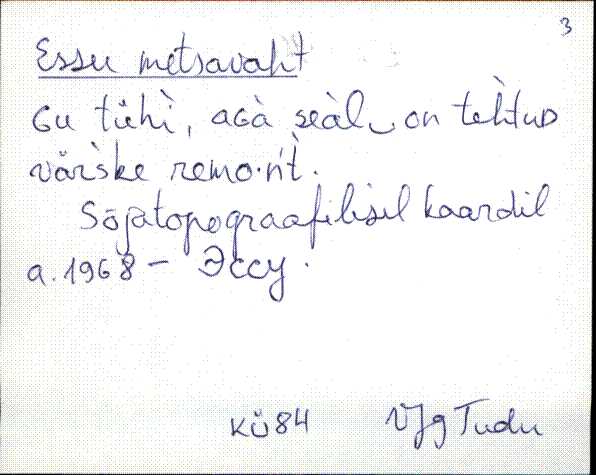 3
Essu metsavaht
Gu tühì, aGà seàl on tehtuD
vär̀ske remo·ǹt.
Sõjatopograafilisel kaardil
a. 1968 – Эссу.
KÜ84 VJg Tudu